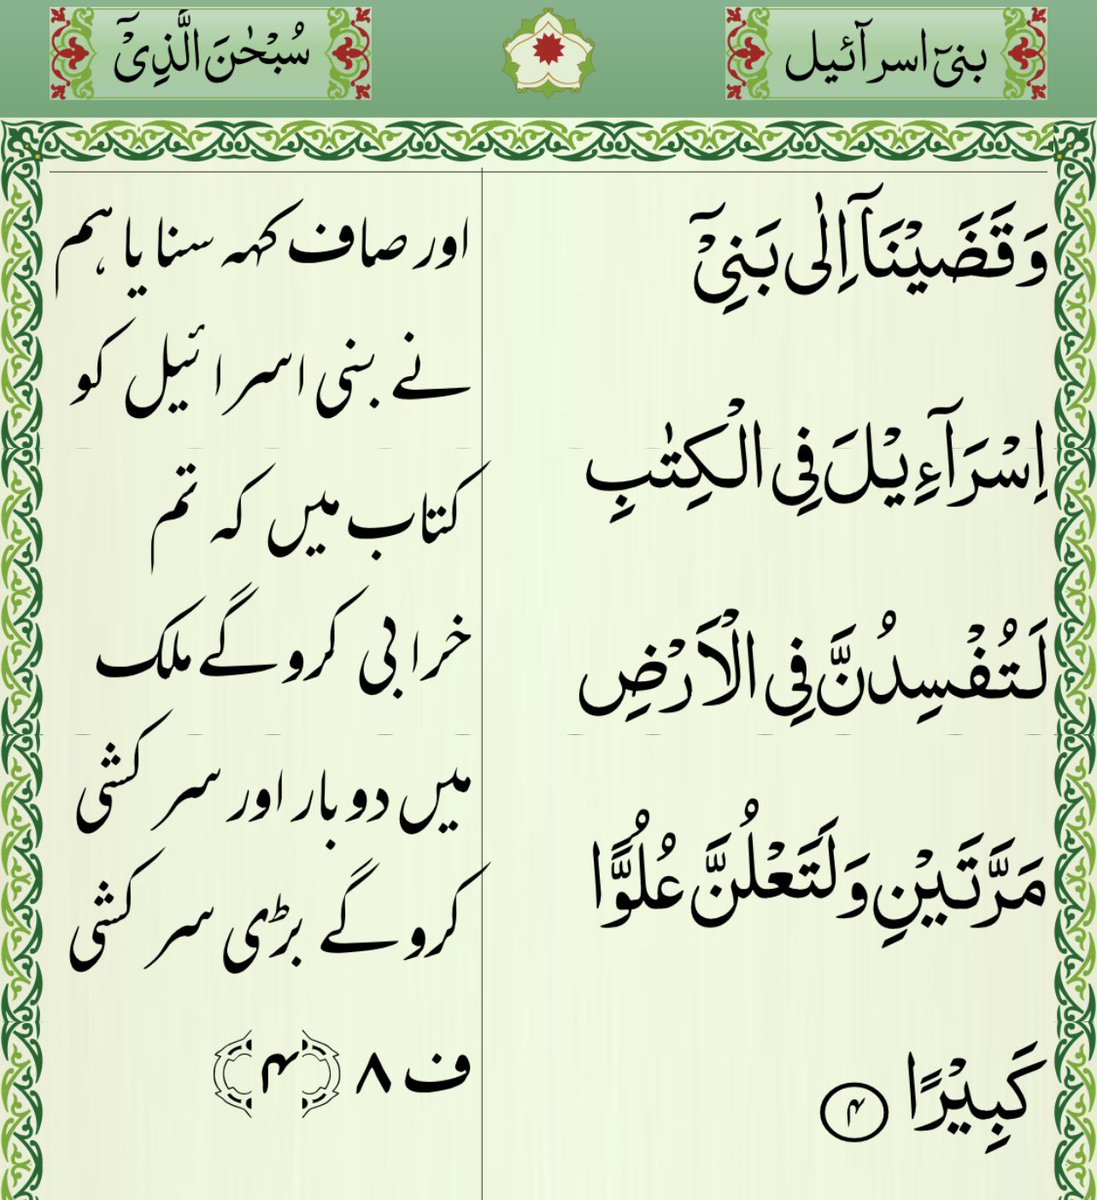 بنیٓ اسرآئیل
سُبْحٰنَ الَّذِیْٓ
وَقَضَیْنَاۤ اِلٰی بَنِیْۤ
اِسْرَآءِیْلَ فِی الْكِتٰبِ
لَتُفْسِدُنَّ فِی الْاَرْضِ
مَرَّتَیْنِ وَلَتَعْلُنَّ عُلُوًّا
كَبِیْرًا ۴
اور صاف کہہ سنایا ہم
نے بنی اسرائیل کو
کتاب میں کہ تم
خرابی کرو گے ملک
میں دو بار اور سرکشی
کرو گے بڑی سرکشی
ف ۸ ﴿۴﴾